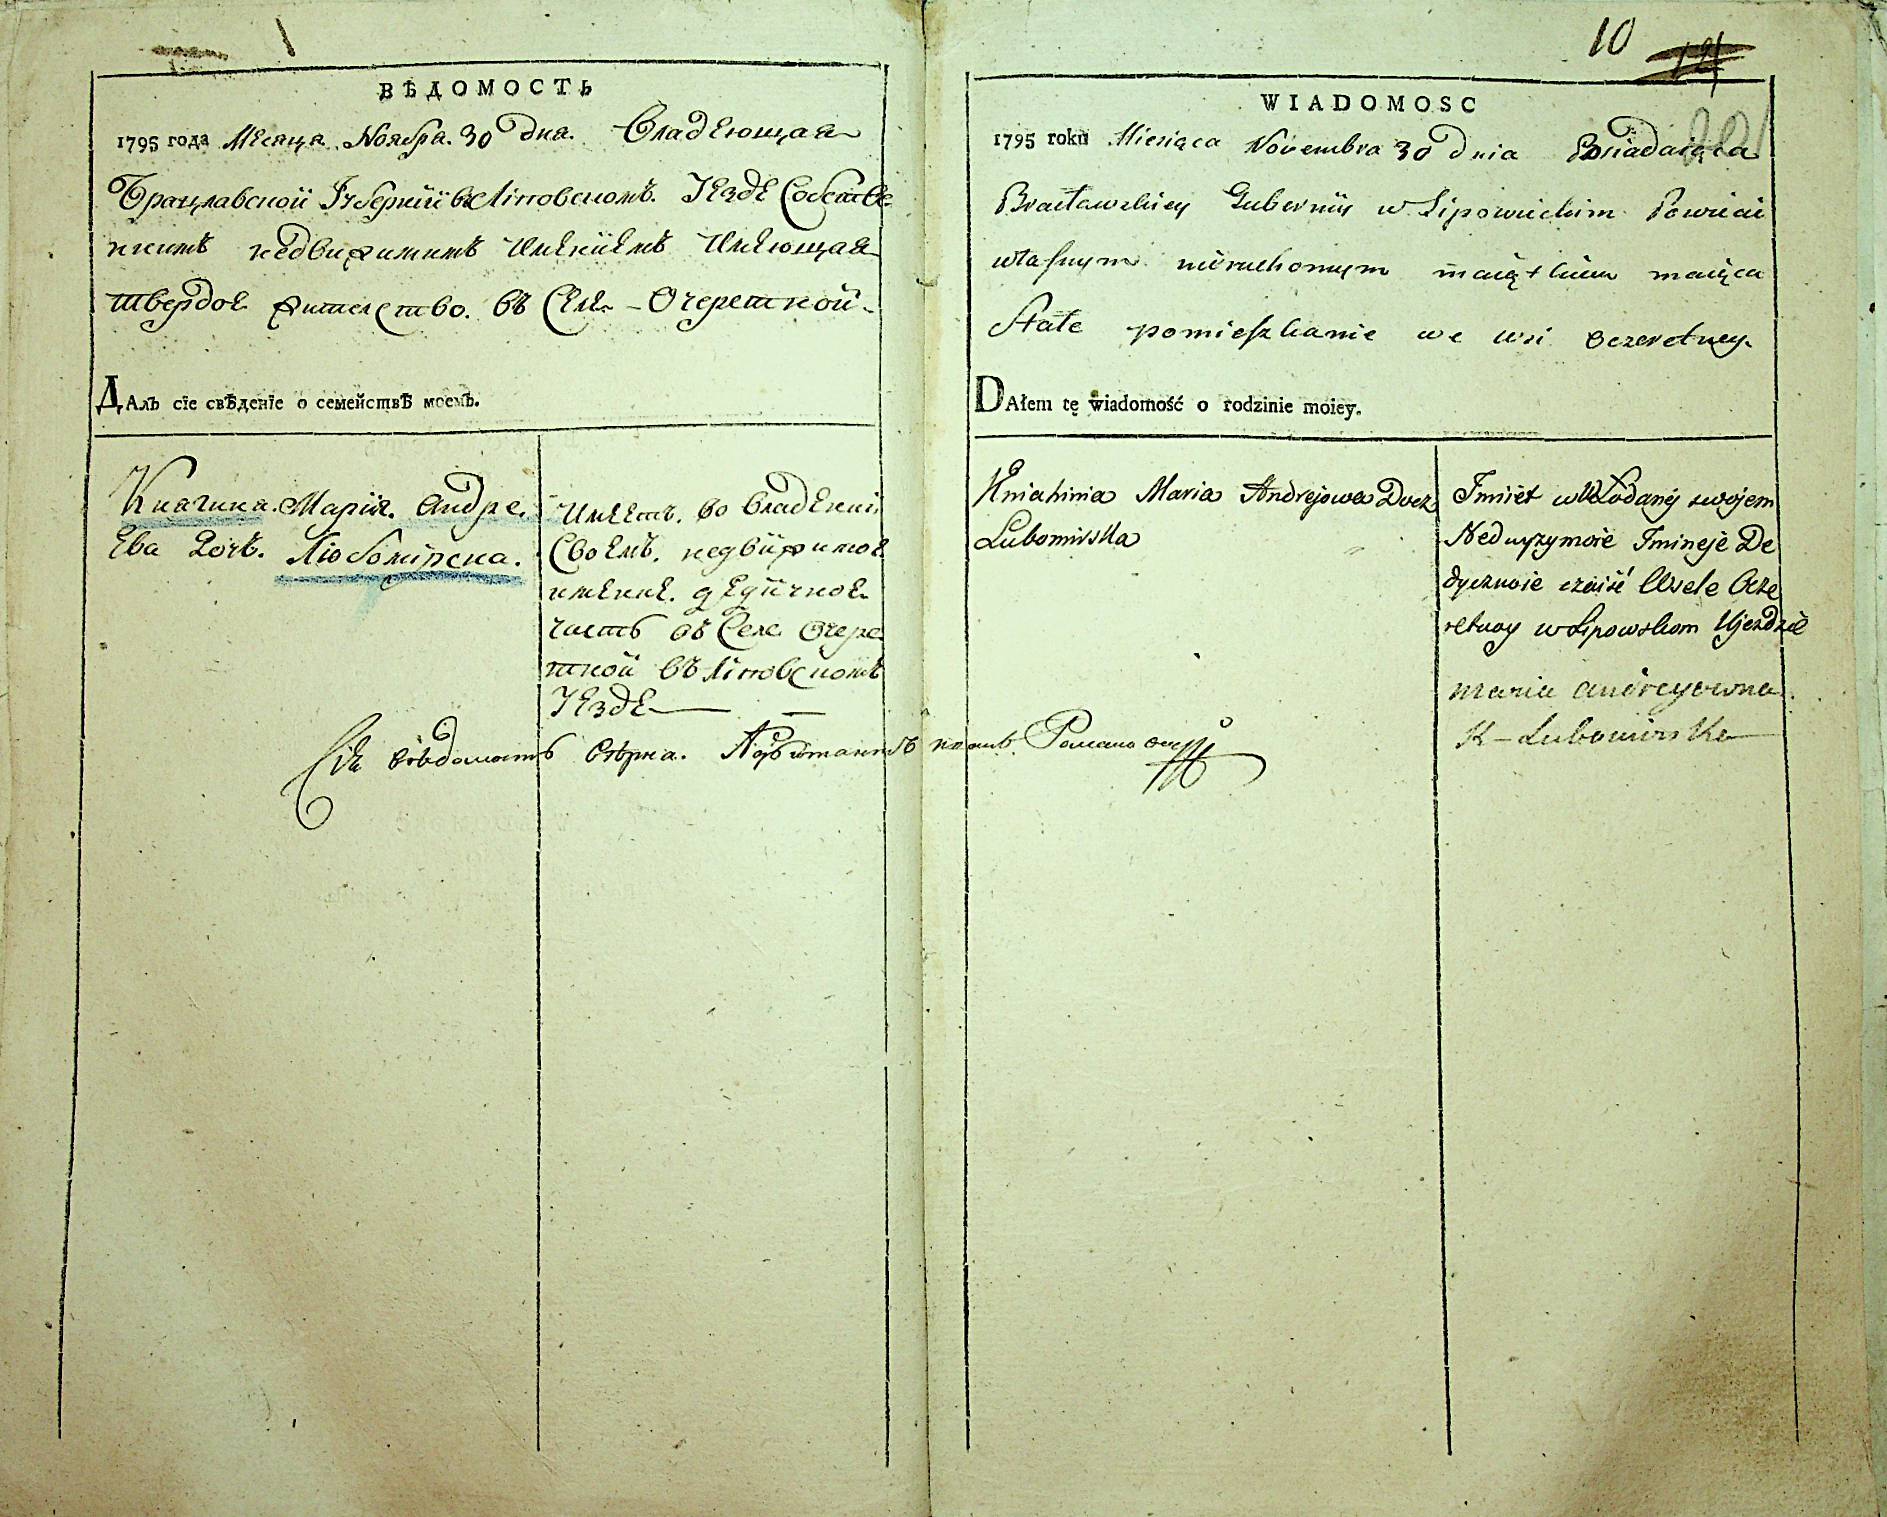 1
ВѢДОМОСТЬ
1795 года Месяца Ноября 30 Дна. Владеющая
Брацлавской Губернїи въ Липовскомъ Уезде Собстве
ннимъ недвижимимъ имениемъ имеющая
твердое жителство. въ Селе - Очеретной -
ДАлъ сїе свѣденїе о семействѣ моемъ.
Княгиня. Марїя. андре.
ева Дочъ. Любомирска.
имеетъ. во владенїи
Своемъ. недвижимое
имение. дедичное.
часть въ Селе Очере
тной въ Липовскомъ
Уезде
Сїя ведомостъ верна. Порутчикъ Романо
10
121
WIADOMOSC
1795 roku Miesiąca Novembra 30 Dnia Posiadaiąca
Bracławskiey Gubernij w Lipowieckim Powiecie
własnym nieruchomym maiątkiem maiąca
Stałe pomieszkanie we wsi Oczeretney.
DAłem tę wiadomość o rodzinie moiey.
Kniahinia Maria Andrejowa Docz
Lubomirska
Imiiet wWładanij swojem
Nedwyzymoie Imineje De
dycznoie czaść WseleOcze
retnoy w Lipowskom Ujezdzie
maria andreyowna
K - Lubomirska